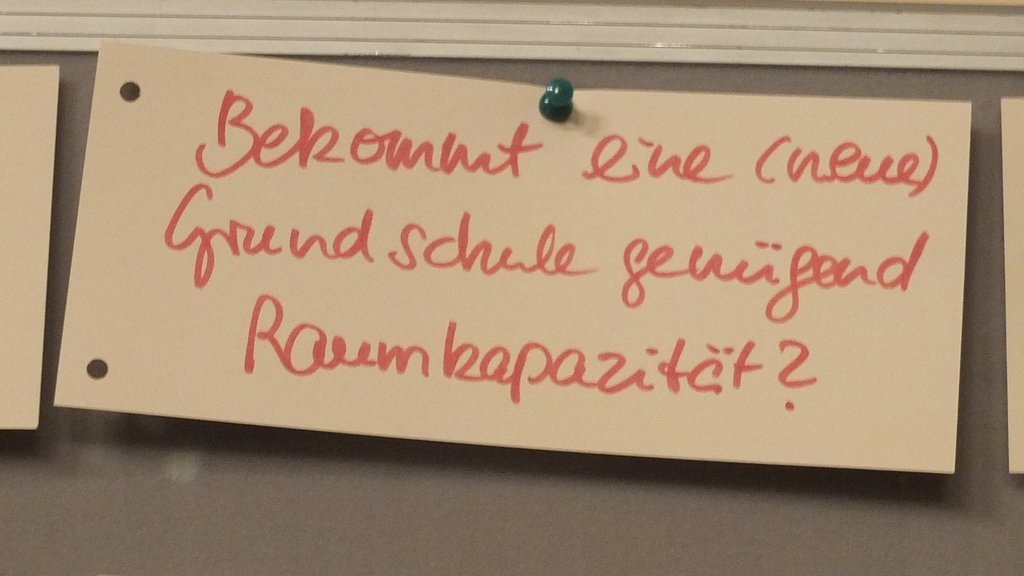 Bekommt eine (neue)
Grundschule genügend
Raumkapazität?